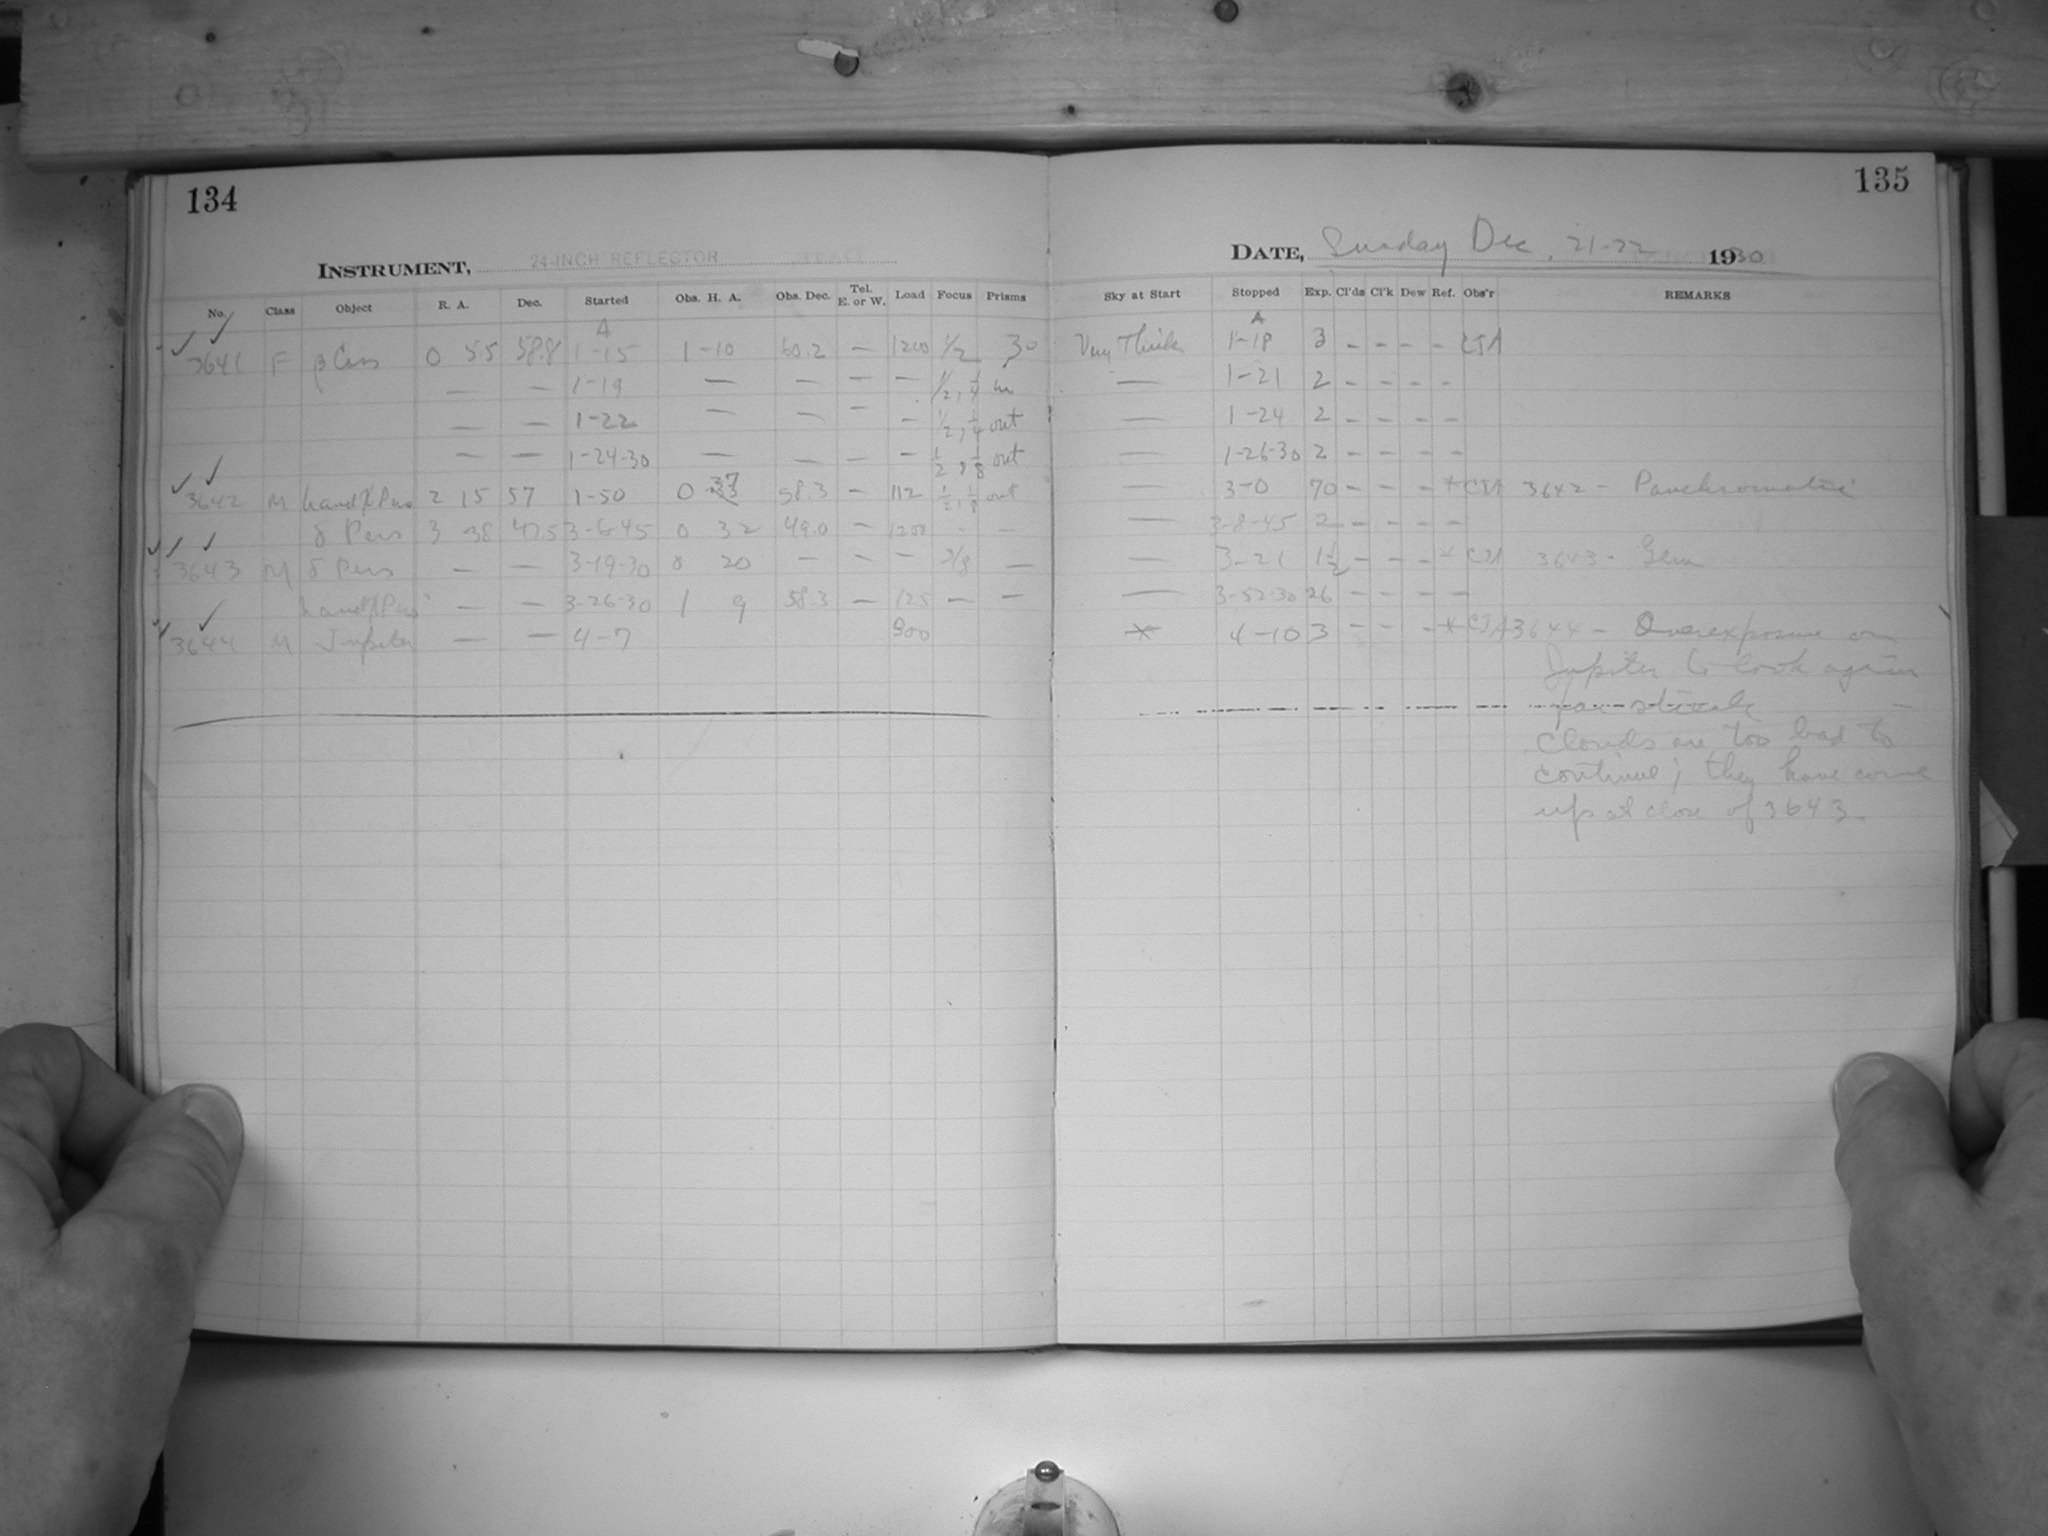 134
INSTRUMENT, 24-INCH REFLECTOR
No. Class Object R. A. Dec. Started Obs. H. A. Obs. Dec. Tel. E. or W. Load Focus Prisms
A
3641 F β Cas 0 5.5 58.8 1-15 1-10 60.2 — 1200 1/2 30
— — 1-19 — — — — 1/2, 1/4 in
— — 1-22 — — — — 1/2, 1/4 out
— — 1-24-30 — — — — 1/2, 1/8 out
3642 M h and χ Pers 2 15 57 1-50 0 37 58.3 — 112 1/2, 1/8 out
δ Pers 3 38 47.5 3-6-45 0 32 49.0 — 1200 - —
3643 M δ Pers — — 3-19-30 0 20 — — — 3/8 —
h and χ Pers — — 3-26-30 1 9 58.3 — 125 — —
3644 M Jupiter — — 4-7 900
135
DATE, Sunday Dec. 21-22 1930
Sky at Start Stopped Exp. Cl'ds Cl'k Dew Ref. Obs'r REMARKS
A
Very Thick 1-18 3 - - - - CJA
— 1-21 2 - - - -
— 1-24 2 - - - -
— 1-26-30 2 - - - -
— 3-0 70 - - - * CJA 3642 - Panchromatic
— 3-8-45 2 - - - -
— 3-21 1 1/2 - - - * CJA 3643 -
— 3-52-30 26 - - - -
* 4-10 3 - - - * CJA 3644 - Overexposure on
Jupiter to look again
for
Clouds are too bad to
continue; they have come
up at close of 3643.